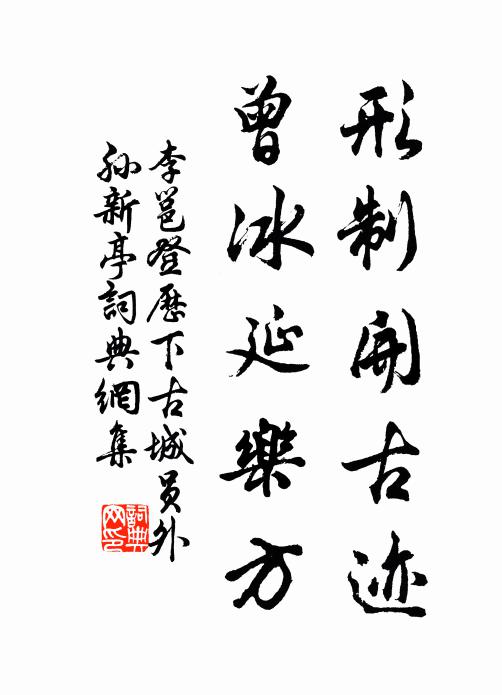 形制開古迹
曾冰延樂方
李邕登歷下古城員外
孫新亭詞典網集
詞典
网印